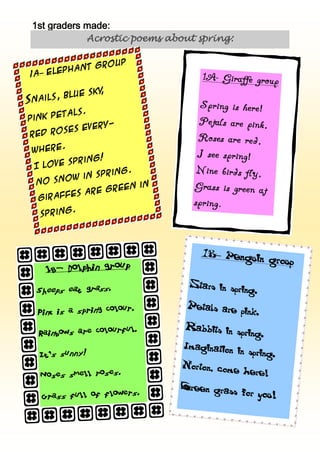 1st graders made:
Acrostic poems about spring:
1A- ELEPHANT GROUP
SNAILS, BLUE SKY,
PINK PETALS.
RED ROSES EVERY-
WHERE.
I LOVE SPRING!
NO SNOW IN SPRING.
GIRAFFES ARE GREEN IN
SPRING.
1A- Giraffe group
Spring is here!
Petals are pink.
Roses are red.
I see spring!
Nine birds fly.
Grass is green at
spring.
1B- Dolphin group
Sheeps eat grass.
Pink is a spring colour.
Rainbows are colourful.
It's sunny!
Noses smell roses.
Grass full of flowers.
1B- Penguin group
Stars in spring.
Petals are pink.
Rabbits in spring.
Imagination in spring.
Norton, come here!
Green grass for you!